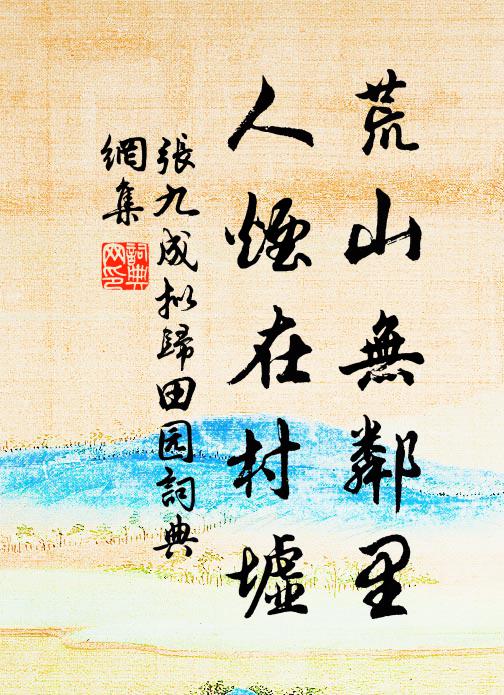 荒山無鄰里
人煙在村墟
張九成拟歸田园詞典
網集
詞典
网印